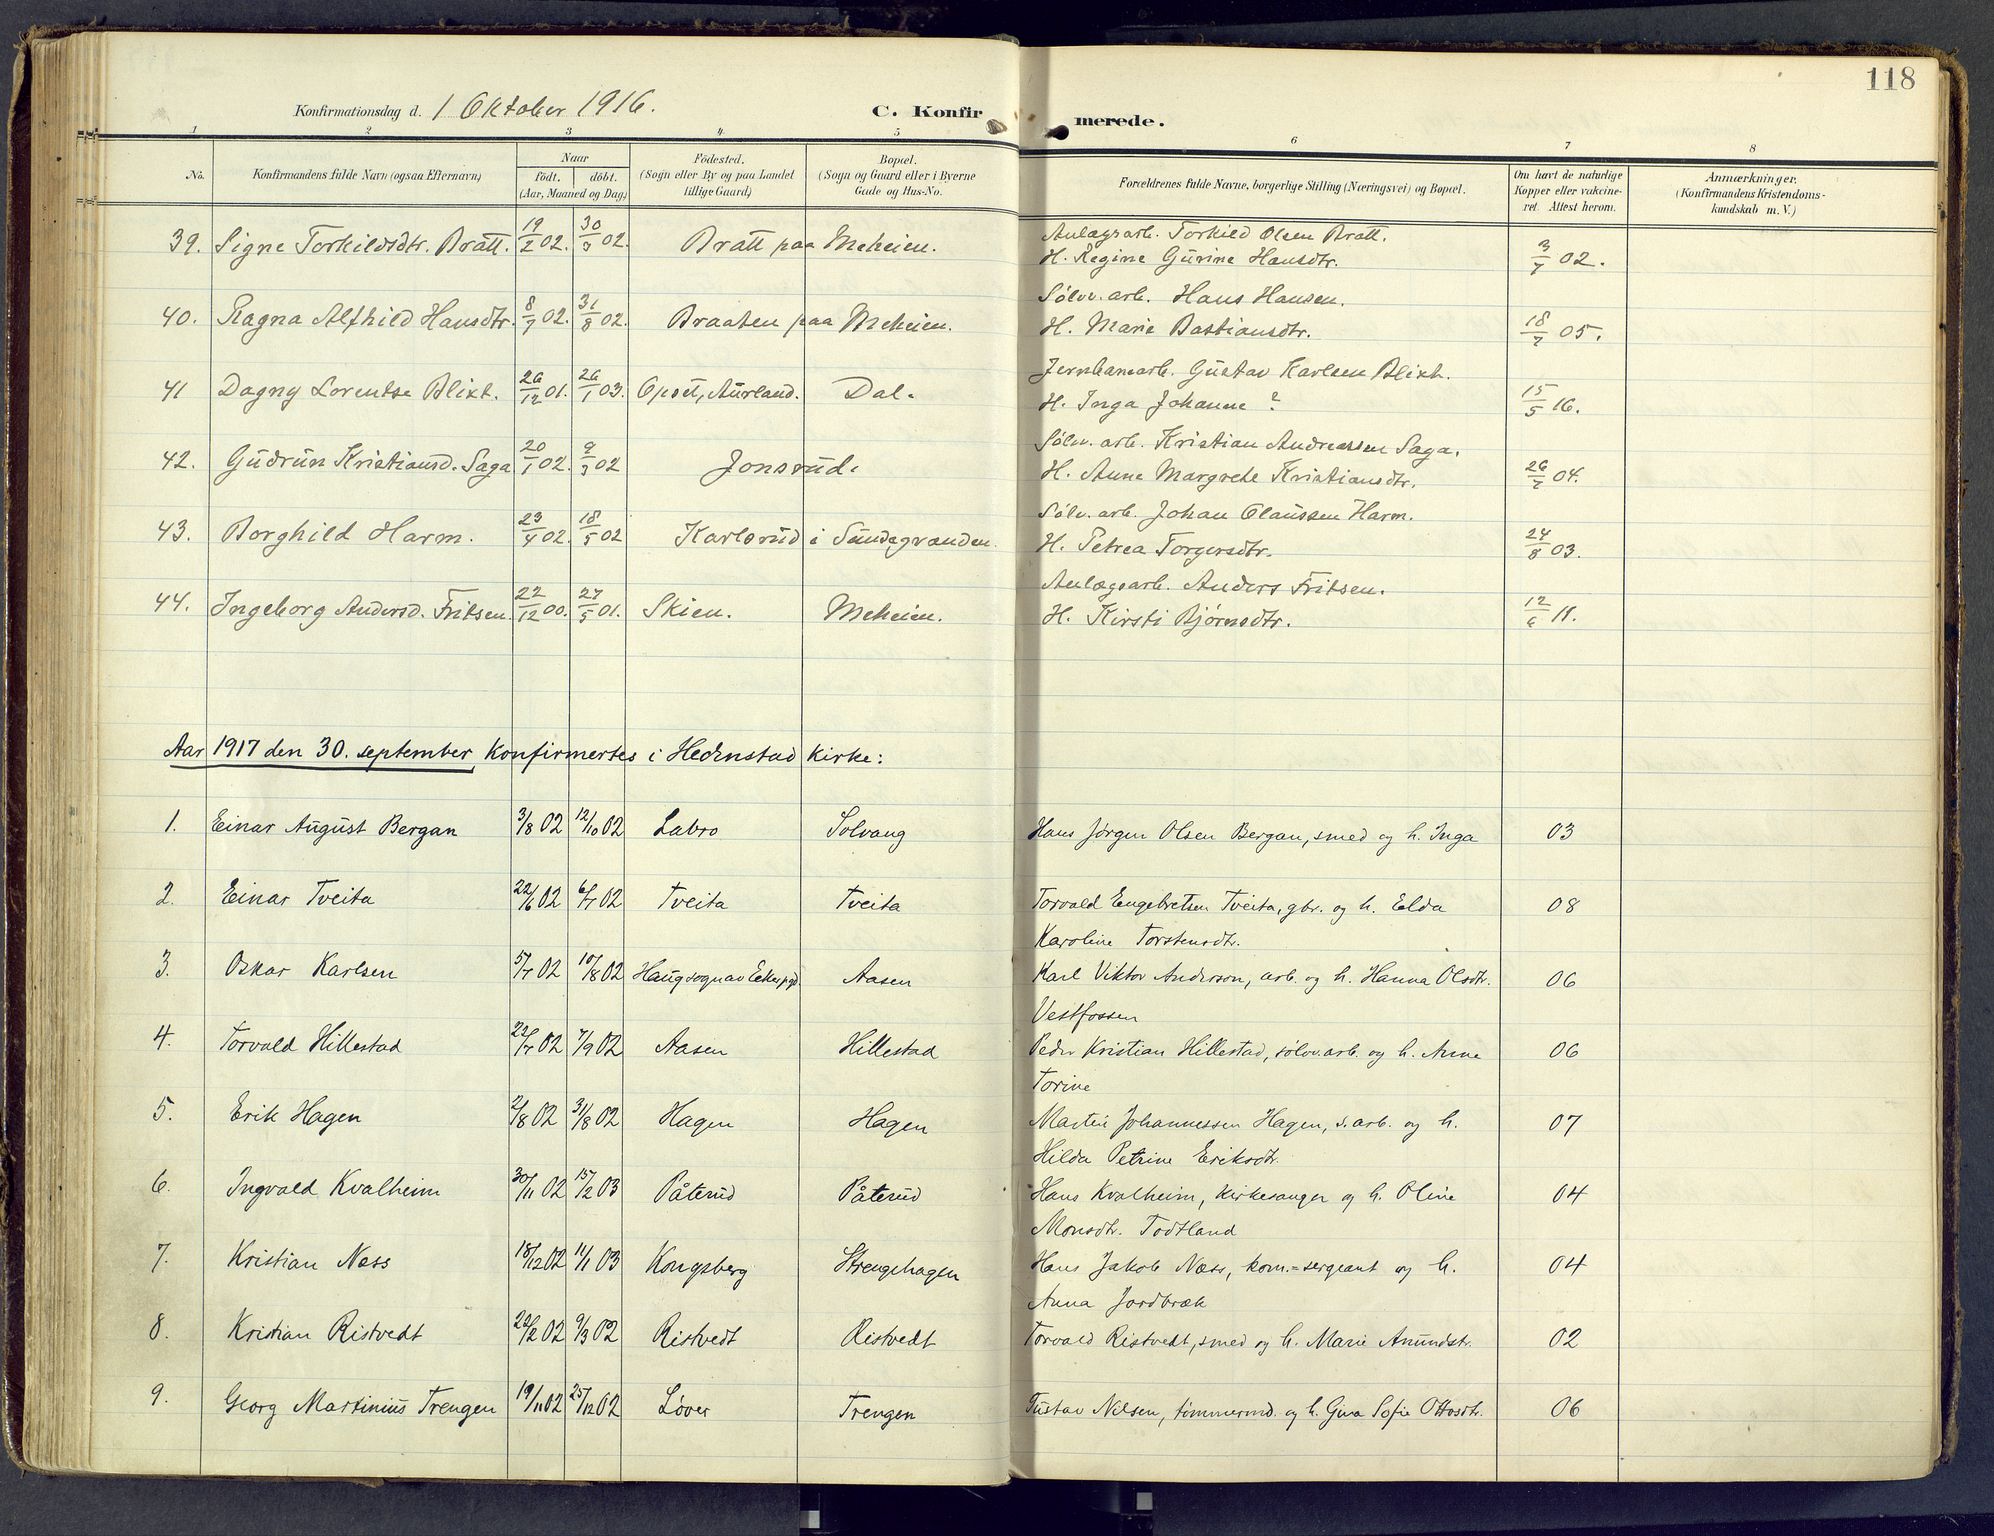 118
Konfirmationsdag d. 1 Oktober 1916. C. Konfirmerede.
1 2 3 4 5 6 7 8
No. Konfirmandens fulde Navn (ogsaa Efternavn) Naar født. døbt. (Aar, Maaned og Dag) Fødested. (Sogn eller By og paa Landet tillige Gaard) Bopæl. (Sogn og Gaard eller i Byerne Gade og Hus-No. Forældrenes fulde Navne, borgerlige Stilling (Næringsvei) og Bopæl. Om havt de naturlige Kopper eller vakcineret. Attest herom. Anmærkninger. (Konfirmandens Kristendomskundskab m. V.)
39. Signe Torkildsdtr. Bratt. 19/2 02. 30/3 02. Bratt paa Meheien. Anlægsarb. Torkild Olsen Bratt. 3/7 02.
H. Regine Gurine Hansdtr.
40. Ragna Alfhild Hansdtr. 8/7 02. 31/8 02. Braaten paa Meheien. Sølvv. arb. Hans Hansen. 18/7 05.
H. Marie Bastiansdtr.
41 Dagny Lorentse Blixt. 26/12 01. 26/1 03. Opset, Aurland. Dal. Jernbanearb. Gustav Karlsen Blixt. 15/5 16.
H. Inga Johanne ?
42. Gudrun Kristiansd. Saga 20/1 02. 9/3 02 Jonsrud. Sølvv. arb. Kristian Andreassen Saga. 26/7 04.
H. Anne Margrete Kristiansdtr.
43. Borghild Harm. 23/4 02. 18/5 02 Karlsrud i Sundsgrænden. Sølvv. arb. Johan Claussen Harm. 24/8 03.
H. Petrea Torgersdtr.
44. Ingeborg Andersd. Fritsen. 22/12 00. 27/5 01. Skien. Meheien. Anlægsarb. Anders Fritsen. 12/6 11.
H. Kirsti Bjørnsdtr.
Aar 1917 den 30. september konfirmertes i Hedenstad kirke:
1. Einar August Bergan 3/8 02 12/10 02 Labro Solvang Hans Jørgen Olsen Bergan, smed og h. Inga 03
2. Einar Tveita 22/6 02 6/7 02 Tveita Tveita Torvald Engebretsen Tveita, gbr. og h. Elda 08
Karoline Torstensdtr.
3. Oskar Karlsen 5/7 02 10/8 02 Haug sogn av Eker pgd. Aasen Karl Viktor Anderson, arb. og h. Hanna Olsdtr. 06
Vestfossen
4. Torvald Hillestad 22/7 02 7/9 02 Aasen Hillestad Peder Kristian Hillestad, sølvv. arb. og h. Anne 06
Torine
5. Erik Hagen 2/8 02 31/8 02 Hagen Hagen Martin Johannessen Hagen, s. arb. og h. 07
Hilda Petrine Eriksdtr.
6. Ingvald Kvalheim 30/11 02 15/2 03 Påterud Påterud Hans Kvalheim, kirkesanger og h. Oline 04
Monsdtr. Todtland
7. Kristian Næss 18/12 02 11/1 03 Kongsberg Strengehagen Hans Jakob Næss, kom.=sergeant og h. 04
Anna Jordbræk
8. Kristian Ristvedt 22/2 02 9/3 02 Ristvedt Ristvedt Torvald Ristvedt, smed og h. Marie Anundstr. 02
9. Georg Martinius Trengen 19/11 02 25/12 02 Løver Trengen Gustav Nilsen, tømmermd. og h. Gina Sofie Ottosdtr. 06